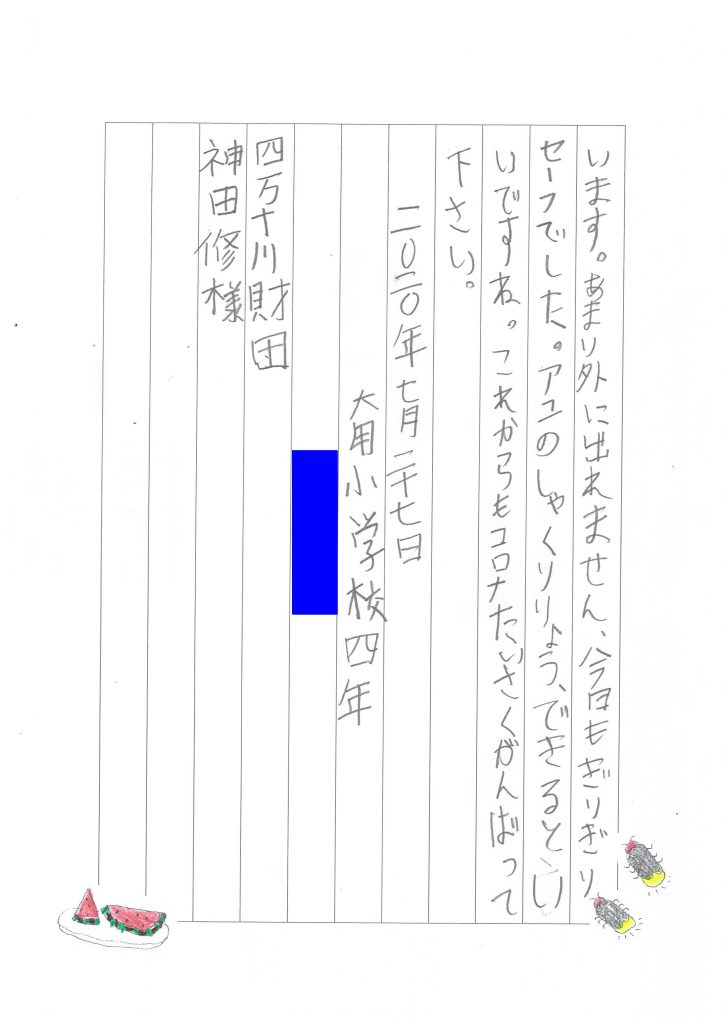 います。あまり外に出れません、今日もぎりぎり
セーフでした。アユのしゃくりりょう、できるとい
いですね。これからもコロナたいさくがんばって
下さい。
二〇二〇年七月二十七日
大用小学校四年
四万十川財団
神田修様